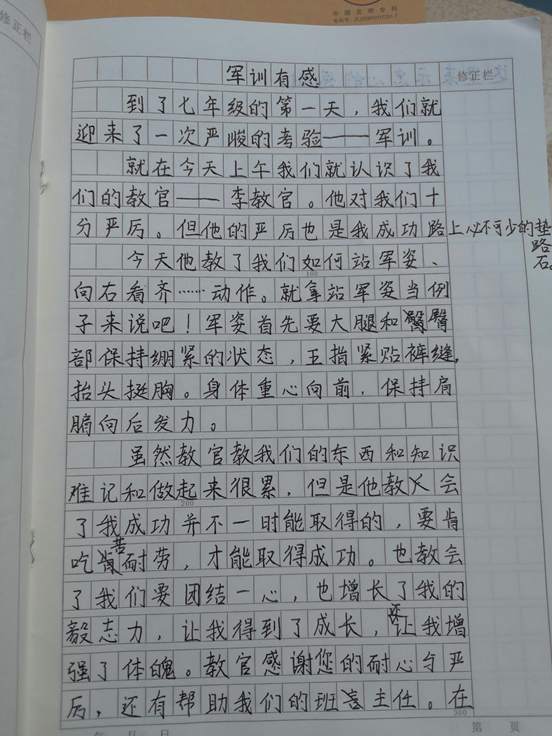 中国发明专利
修正栏
军训有感
修正栏
到了七年级的第一天，我们就
迎来了一次严峻的考验——军训。
就在今天上午我们就认识了我
们的教官——李教官。他对我们十
分严厉。但他的严厉也是我成功路上必不可少的垫
路
石。
今天他教了我们如何站军姿、
180
向右看齐……动作。就拿站军姿当例
子来说吧！军姿首先要大腿和臀
部保持绷紧的状态，五指紧贴裤缝，
抬头挺胸。身体重心向前，保持肩
膀向后发力。
虽然教官教我们的东西和知识
难记和做起来很累，但是他教会
200
了我成功并不一时能取得的，要肯
吃苦耐劳，才能取得成功。也教会
了我们要团结一心，也增长了我的
毅志力，让我得到了成长，还让我增
强了体魄。教官感谢您的耐心与严
厉，还有帮助我们的班主任。在
300
年 月 日
第 页